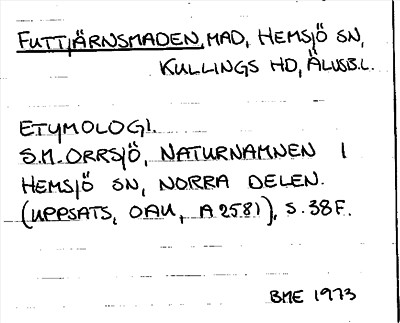 FUTTJÄRNSMADEN, MAD, HEMSJÖ SN,
KULLINGS HD, ÄLVSB.L.
ETYMOLOGI.
S.M. ORRSJÖ, NATURNAMNEN I
HEMSJÖ SN, NORRA DELEN.
(UPPSATS, OAU, A 2581), S. 38F.
BME 1973